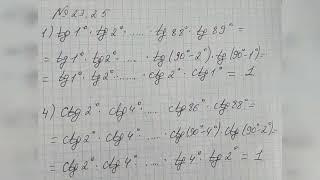 № 23.25
1) tg 1° · tg 2° · ..... · tg 88° · tg 89° =
= tg 1° · tg 2° · ..... · tg (90°-2°) · tg (90°-1°) =
= tg 1° · tg 2° · ..... · ctg 2° · ctg 1° = 1
4) ctg 2° · ctg 4° · ..... · ctg 86° · ctg 88° =
= ctg 2° · ctg 4° · ..... · ctg (90°-4°) · ctg (90°-2°) =
= ctg 2° · ctg 4° · ..... · tg 4° · tg 2° = 1